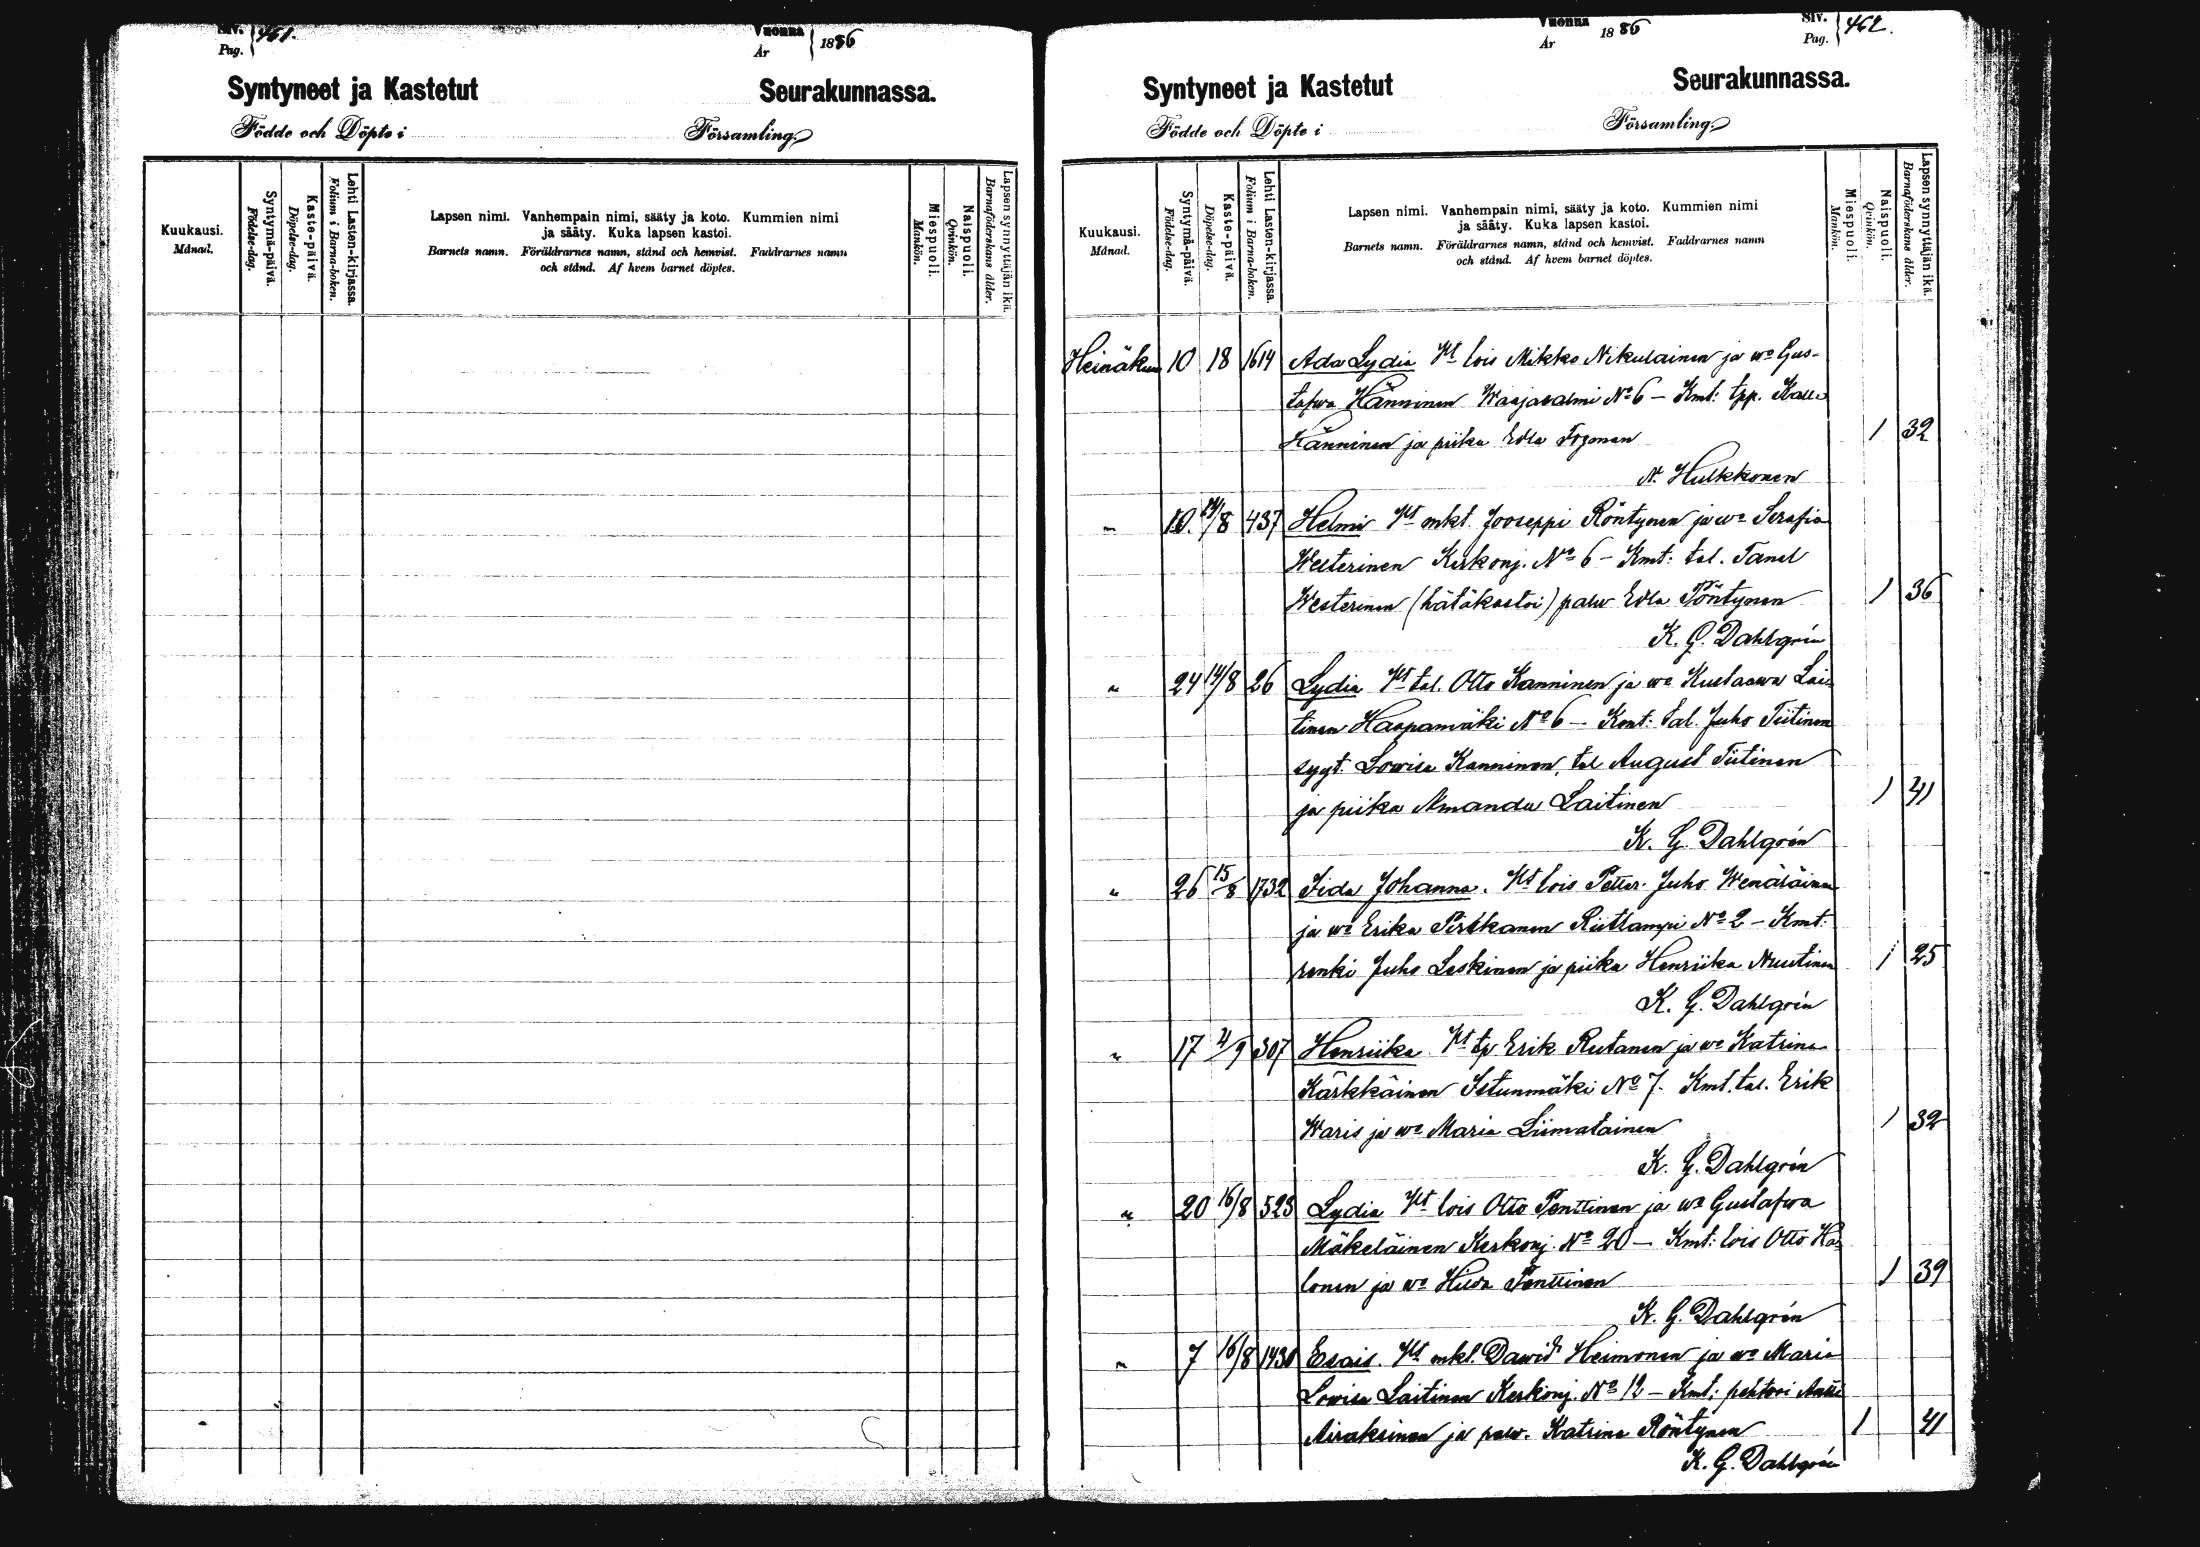 Siv.
Pag. 461.
Vuonna
År 1886
Syntyneet ja Kastetut Seurakunnassa.
Födde och Döpte i Församling.
Kuukausi.
Månad.
Syntymä-päivä.
Födelse-dag.
Kaste-päivä.
Döpelse-dag.
Lehti Lasten-kirjassa.
Folium i Barna-boken.
Lapsen nimi. Vanhempain nimi, sääty ja koto. Kummien nimi
ja sääty. Kuka lapsen kastoi.
Barnets namn. Föräldrarnes namn, stånd och hemvist. Faddrarnes namn
och stånd. Af hvem barnet döptes.
Miespuoli.
Mankön.
Naispuoli.
Qvinkön.
Lapsen synnyttäjän ikä.
Barnaföderskans ålder.
Vuonna
År 1886
Siv.
Pag. 462.
Syntyneet ja Kastetut Seurakunnassa.
Födde och Döpte i Församling.
Kuukausi.
Månad.
Syntymä-päivä.
Födelse-dag.
Kaste-päivä.
Döpelse-dag.
Lehti Lasten-kirjassa.
Folium i Barna-boken.
Lapsen nimi. Vanhempain nimi, sääty ja koto. Kummien nimi
ja sääty. Kuka lapsen kastoi.
Barnets namn. Föräldrarnes namn, stånd och hemvist. Faddrarnes namn
och stånd. Af hvem barnet döptes.
Miespuoli.
Mankön.
Naispuoli.
Qvinkön.
Lapsen synnyttäjän ikä.
Barnaföderskans ålder.
Heinäkuu 10 18 1614 Ada Lydia Vt lois Mikko Nikulainen ja wo Gus-
tafva Hänninen Waajasalmi No 6 - Kmt: tpp. Kalle
Hänninen ja piika Edla 1 32
N. Hulkkonen
" 10. 14/8 437 Helmi Vt mkt. Jooseppi Röntynen ja wo Serafia
Westerinen Kerkonj. No 6 - Kmt: tal. Taneli
Westerinen (hätäkastoi) palv Edla Pöntynen 1 36
K. G. Dahlgrén
" 24 14/8 26 Lydia Vt tal. Otto Kanninen ja wo Kustaawa Lai-
tinen Haapamäki No 6 - Kmt: tal. Juho Tiitinen
syyt. Lowisa Kanninen, tal August Tiitinen
ja piika Amanda Laitinen 1 41
K. G. Dahlgrén
" 26 15/8 1732 Iida Johanna. Vt lois Petter Juho Wenäläinen
ja wo Erika Pirskanen No 2 - Kmt:
renki Juho Leskinen ja piika Henriika Nuutinen 1 25
K. G. Dahlgrén
" 17 /9 307 Henriika Vt tp Erik Rutanen ja wo Katrina
Kärkkäinen Istunmäki No 7. Kmt. tal. Erik
Waris ja wo Maria Liimatainen 1 32
K. G. Dahlgrén
" 20 16/8 523 Lydia Vt lois Otto Penttinen ja wo Gustafva
Mäkeläinen Kerkonj. No 20 - Kmt: lois Otto Ha-
lonen ja wo Hilda Penttinen 1 39
K. G. Dahlgrén
" 7 16/8 1430 Esais. Vt mkl. Dawid Heimonen ja wo Maria
Lovisa Laitinen Kerkonj. No 12 - Kmt: pehtori Antti
Airaksinen ja palv. Katrina Röntynen 1 41
K. G. Dahlgrén